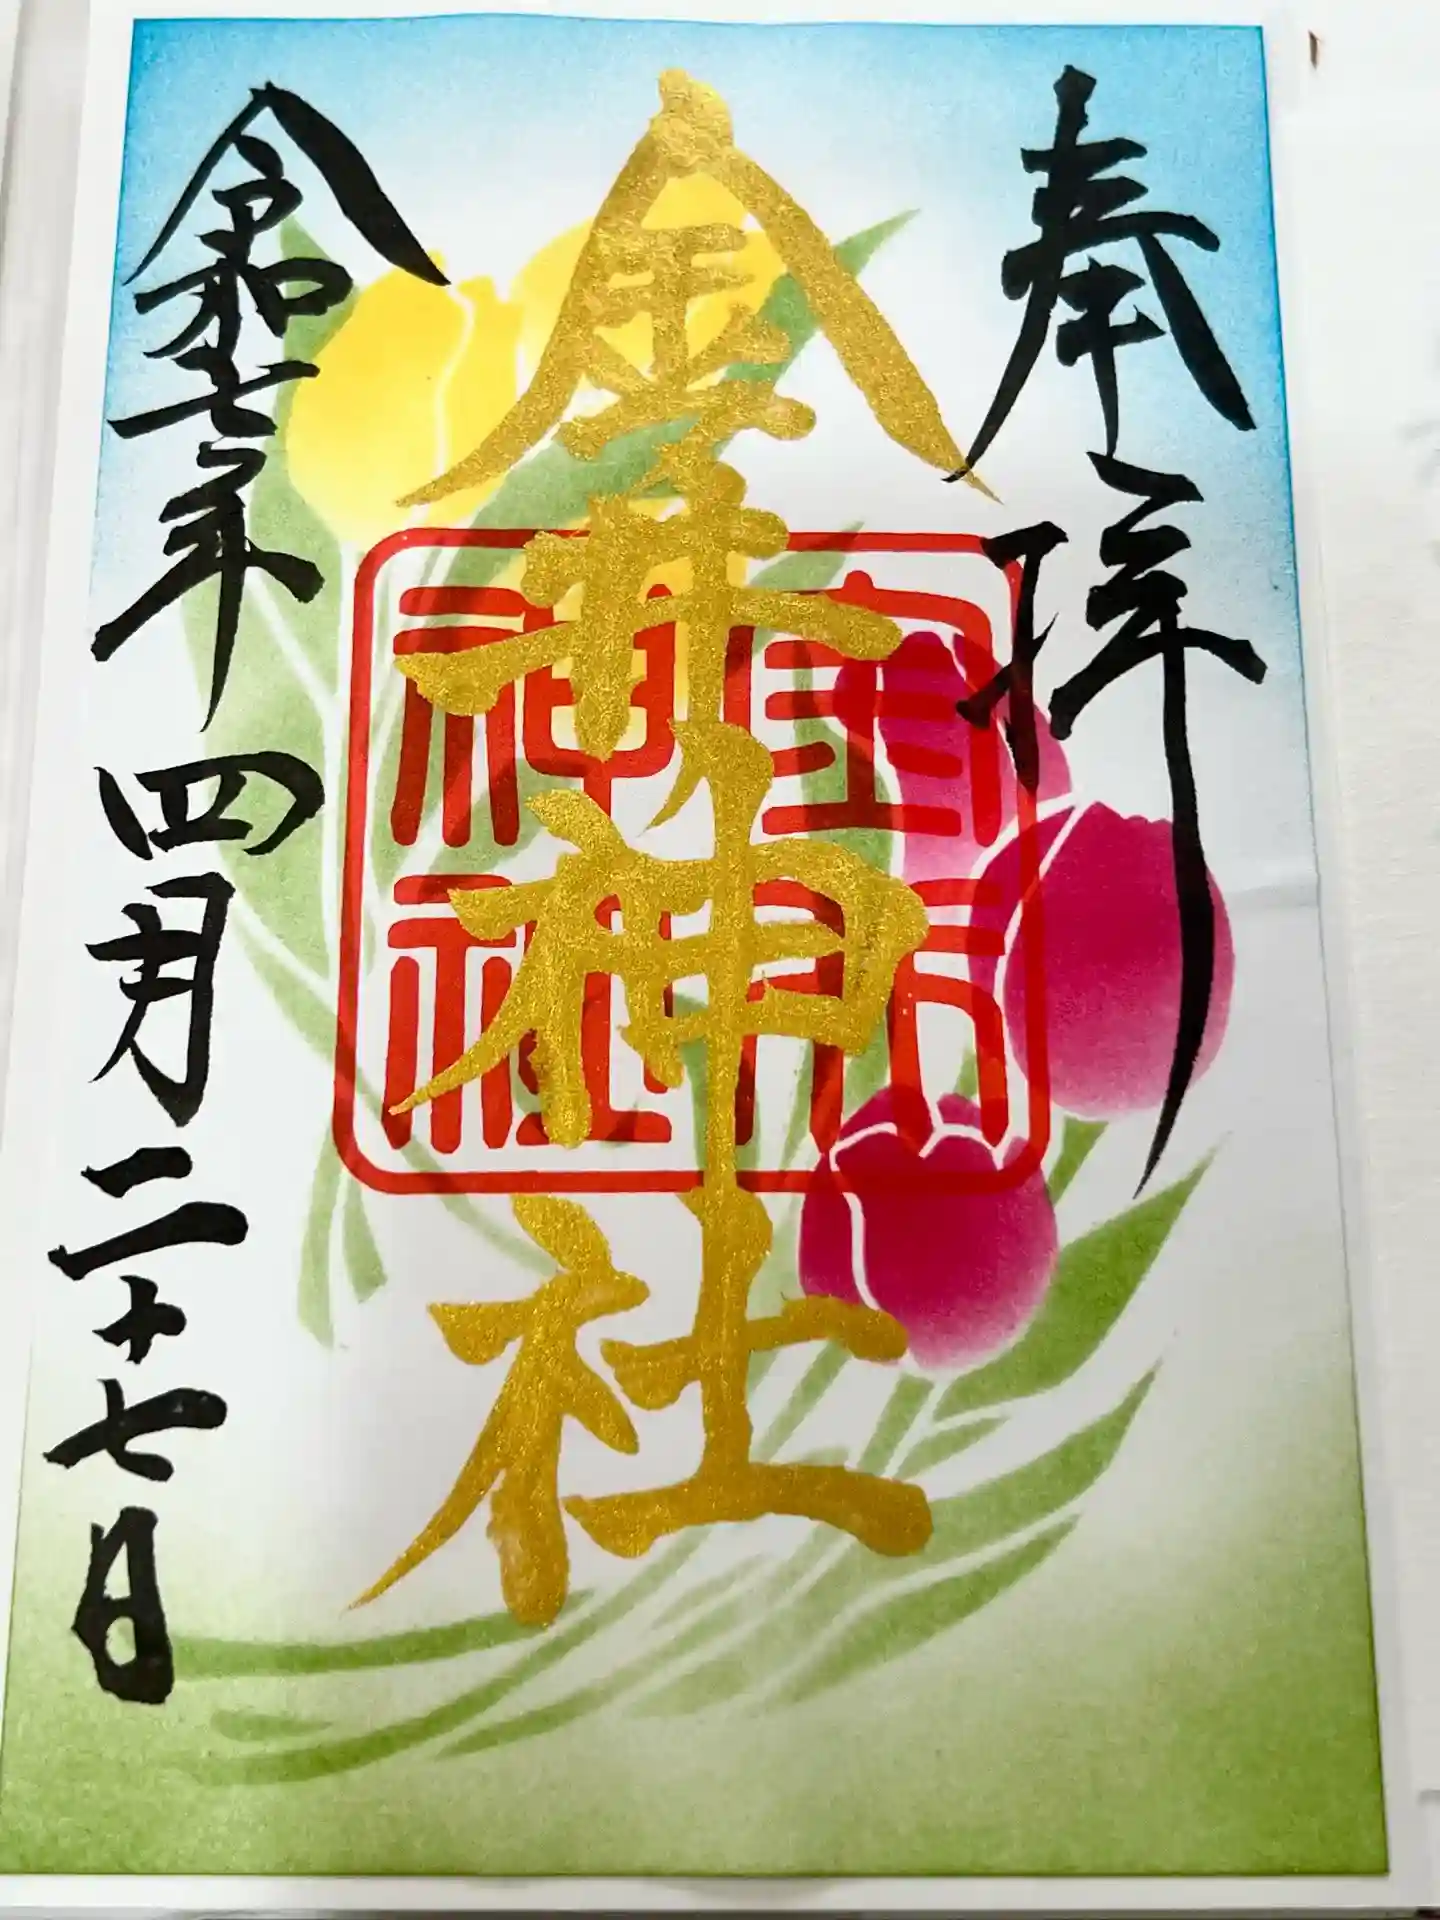 奉拝
金井神社
神社
令和七年四月二十七日